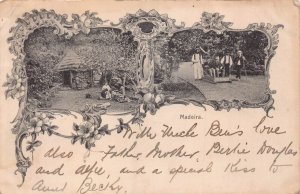 Madeira.
With Uncle Ben's love
also Father, Mother, Bertie Douglas
and and a special Kiss to
Aunt